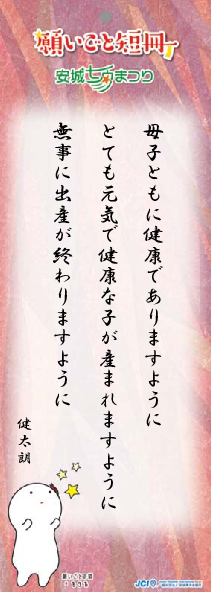 願いごと短冊
安城七夕まつり
母子ともに健康でありますように
とても元気で健康な子が産まれますように
無事に出産が終わりますように
健太朗
願いごとの国
JCI